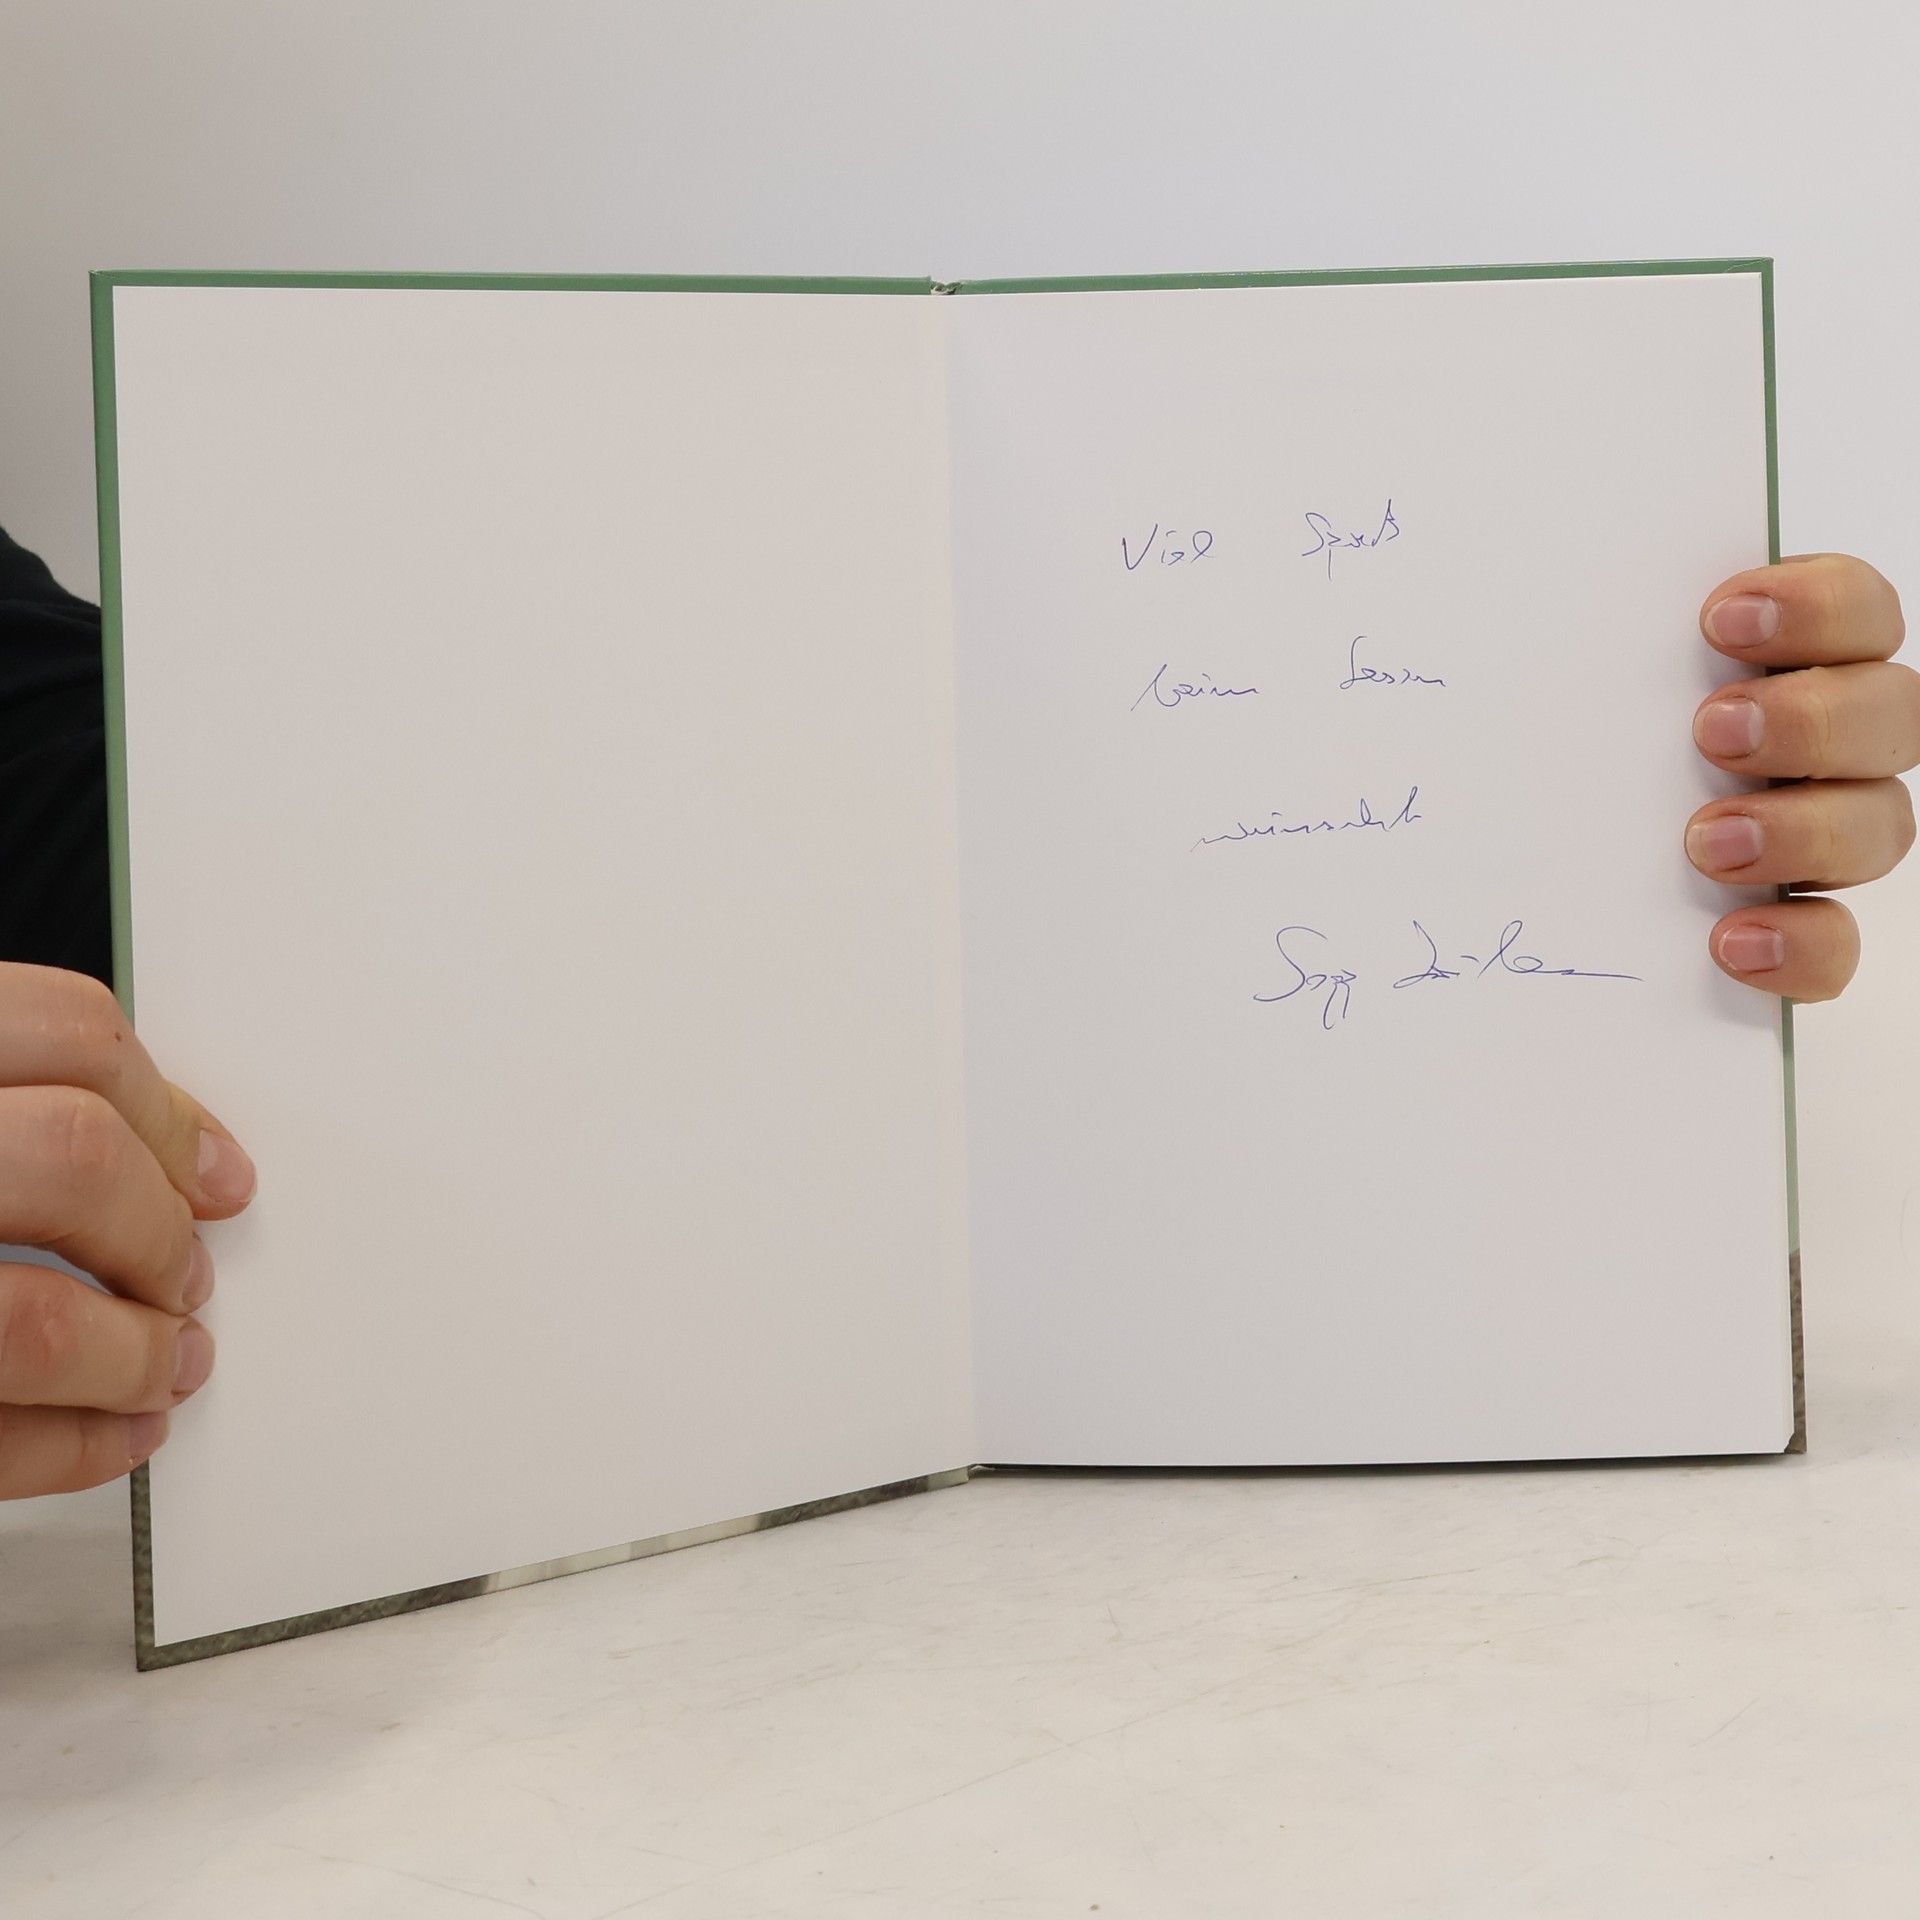 Viel Spaß
beim Lesen
wünscht
Sepp